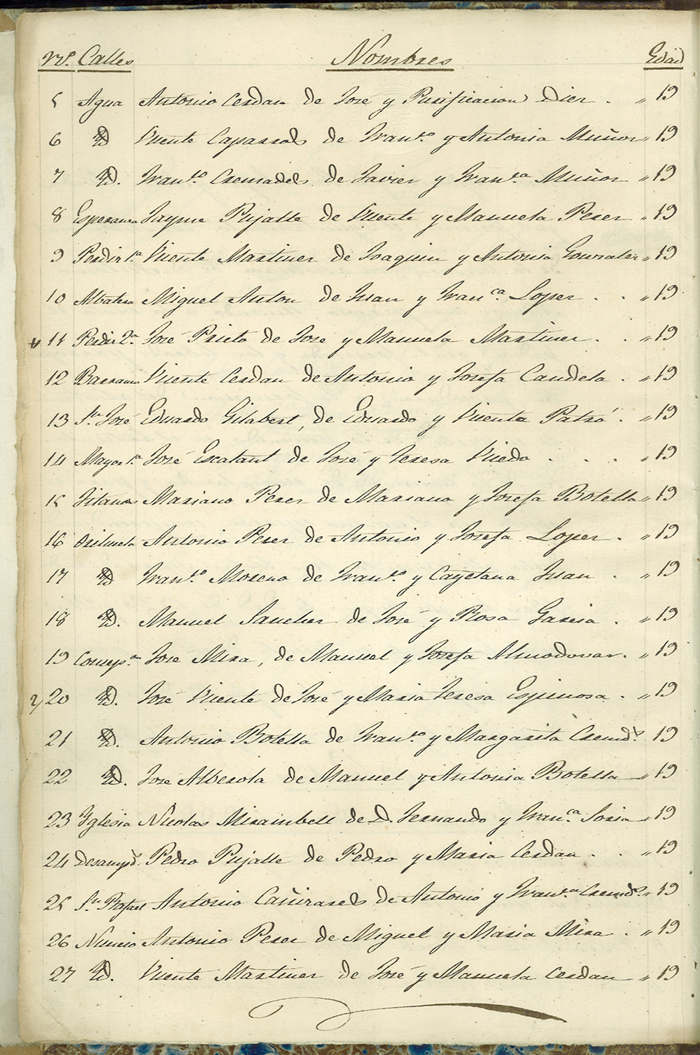 Nos. Calles Nombres Edad
5 Agua Antonio Cerdan de José y Purificacion Dier . " 19
6 Yd Vicente Caparros de Franco y Antonia Muñor " 19
7 Yd. Franco Cremades de Javier y Franca Muñor " 19
8 Esperanza Jayme Pujalte de Vicente y Manuela Perer " 19
9 Perdir 1o Vicente Martiner de Joaquin y Antonia Gonraler " 19
10 Albatera Miguel Anton de Juan y Franca Loper . . " 19
11 Perdir 2o José Prieto de José y Manuela Martiner . " 19
12 Vicente Cerdan de Antonio y Josefa Candela . " 19
13 Sn José Eduardo Gilabert, de Eduardo y Vicenta Patró . " 19
14 Mayor José de José y Teresa . . . . " 19
15 Gitanos Mariano Perer de Mariano y Josefa Botella " 19
16 Orihuela Antonio Perer de Antonio y Josefa Loper . " 19
17 Yd Franco Moreno de Franco y Cayetana Juan . " 19
18 Yd. Manuel Sancher de José y Rosa Garcia . " 19
19 José Mira, de Manuel y Josefa Almodovar . " 19
20 Yd. José Vicente de José y Maria Teresa Espinosa . " 19
21 Yd. Antonio Botella de Franco y Margarita Cremds " 19
22 Yd. Jose Alberola de Manuel y Antonia Botella " 19
23 Iglesia Nicolas Mirambell de D. Fernando y Franca Soria " 19
24 Desampds Pedro Pujalte de Pedro y Maria Cerdan . . " 19
25 Sn Rafael Antonio Cañirares de Antonio y Franca Cremds " 19
26 Nuncio Antonio Perer de Miguel y Maria Mira . " 19
27 Yd. Vicente Martiner de José y Manuela Cerdan " 19